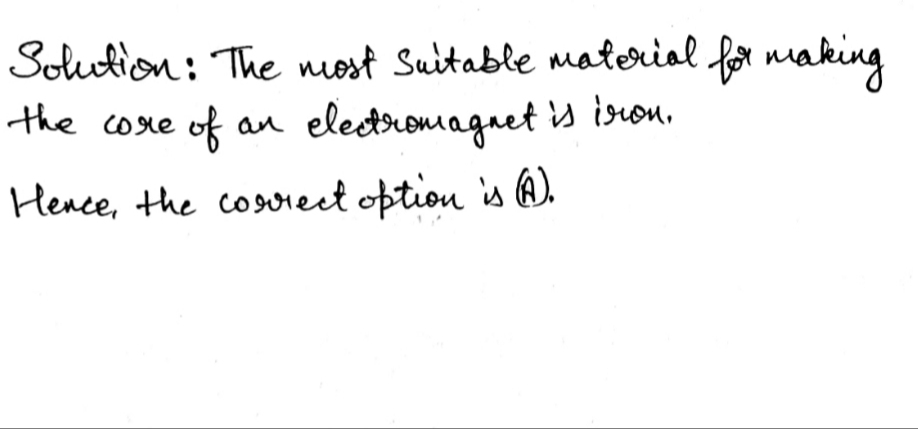 Solution: The most suitable material for making
the core of an electromagnet is iron.
Hence, the correct option is (A).